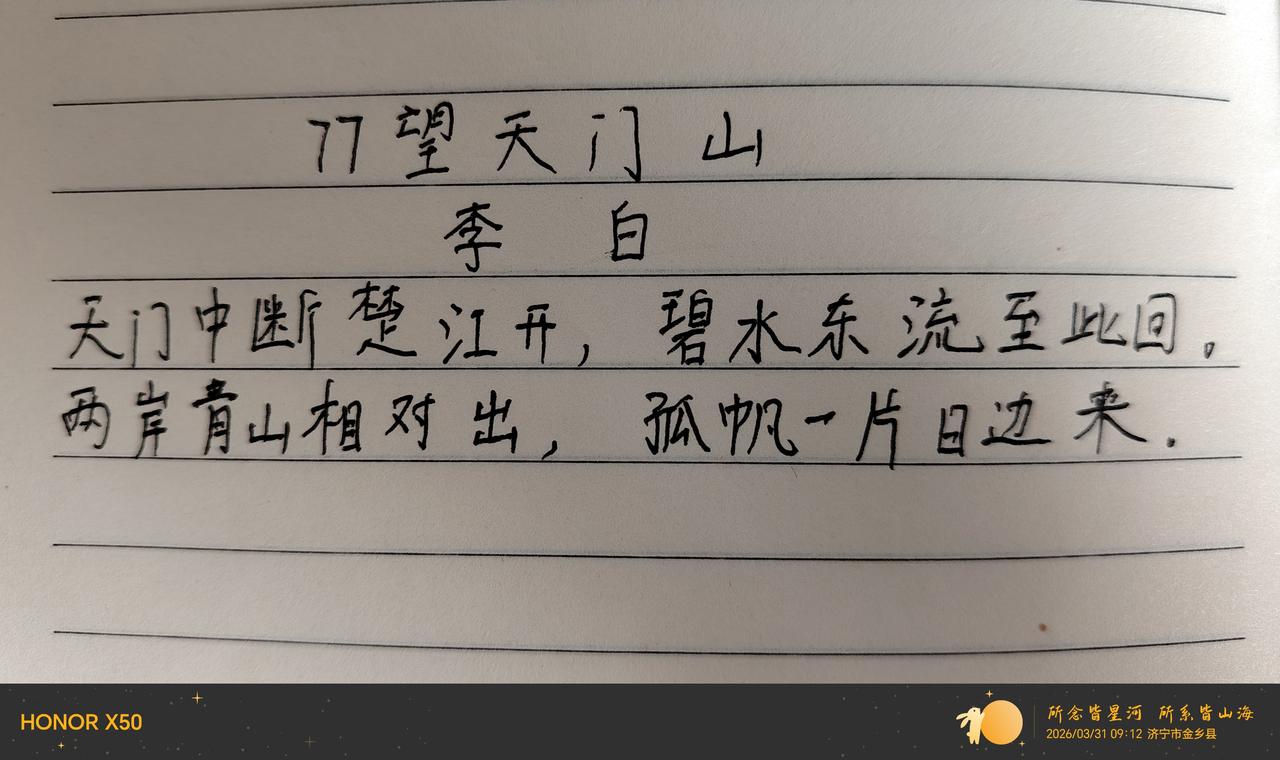 77望天门山
李 白
天门中断楚江开, 碧水东流至此回。
两岸青山相对出, 孤帆一片日边来.
HONOR X50
所念皆星河 所系皆山海
2026/03/31 09:12 济宁市金乡县